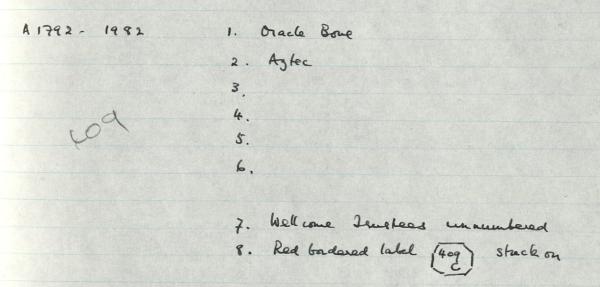 A 1792 - 1982
1. Oracle Bone
2. Aztec
3.
4.
5.
6.
409
7. Wellcome Trustees unnumbered
8. Red bordered label 409 C stuck on